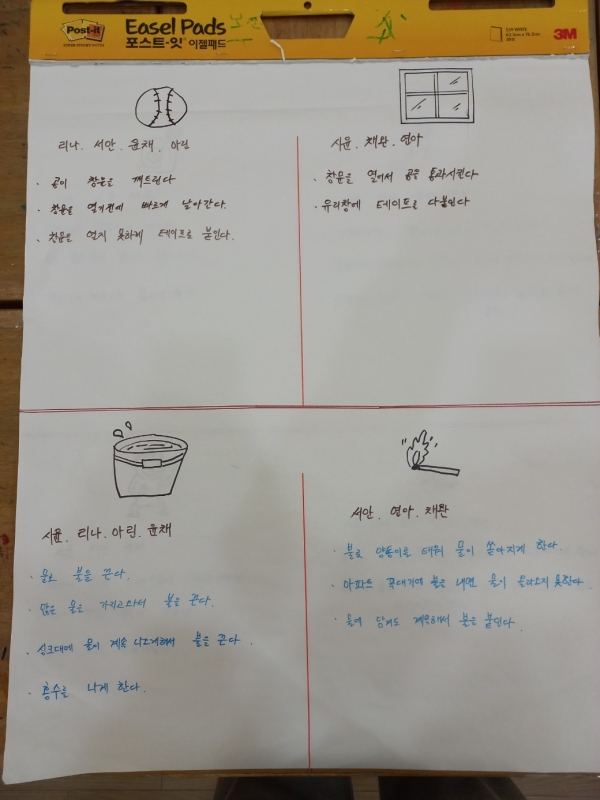 Post-it
Easel Pads
포스트-잇 이젤패드
3M
리나. 서안. 윤채. 아린
· 공이 창문을 깨트린다
· 창문을 열기전에 빠르게 날아간다.
· 창문을 열지 못하게 테이프로 붙인다.
시윤. 채완. 연아
· 창문을 열어서 공을 통과시킨다
· 유리창에 테이프를 다붙인다
시윤. 리나. 아린. 윤채
· 물로 불을 끈다.
· 많은 물을 가지고와서 불을 끈다.
· 싱크대에 물이 계속 나오게해서 불을 끈다.
· 홍수를 나게 한다.
서안. 연아. 채완
· 불로 양동이를 태워 물이 쏟아지게 한다.
· 아파트 꼭대기에 불을 내면 물이 올라오지 못한다.
· 물에 닿아도 계속해서 불을 붙인다.